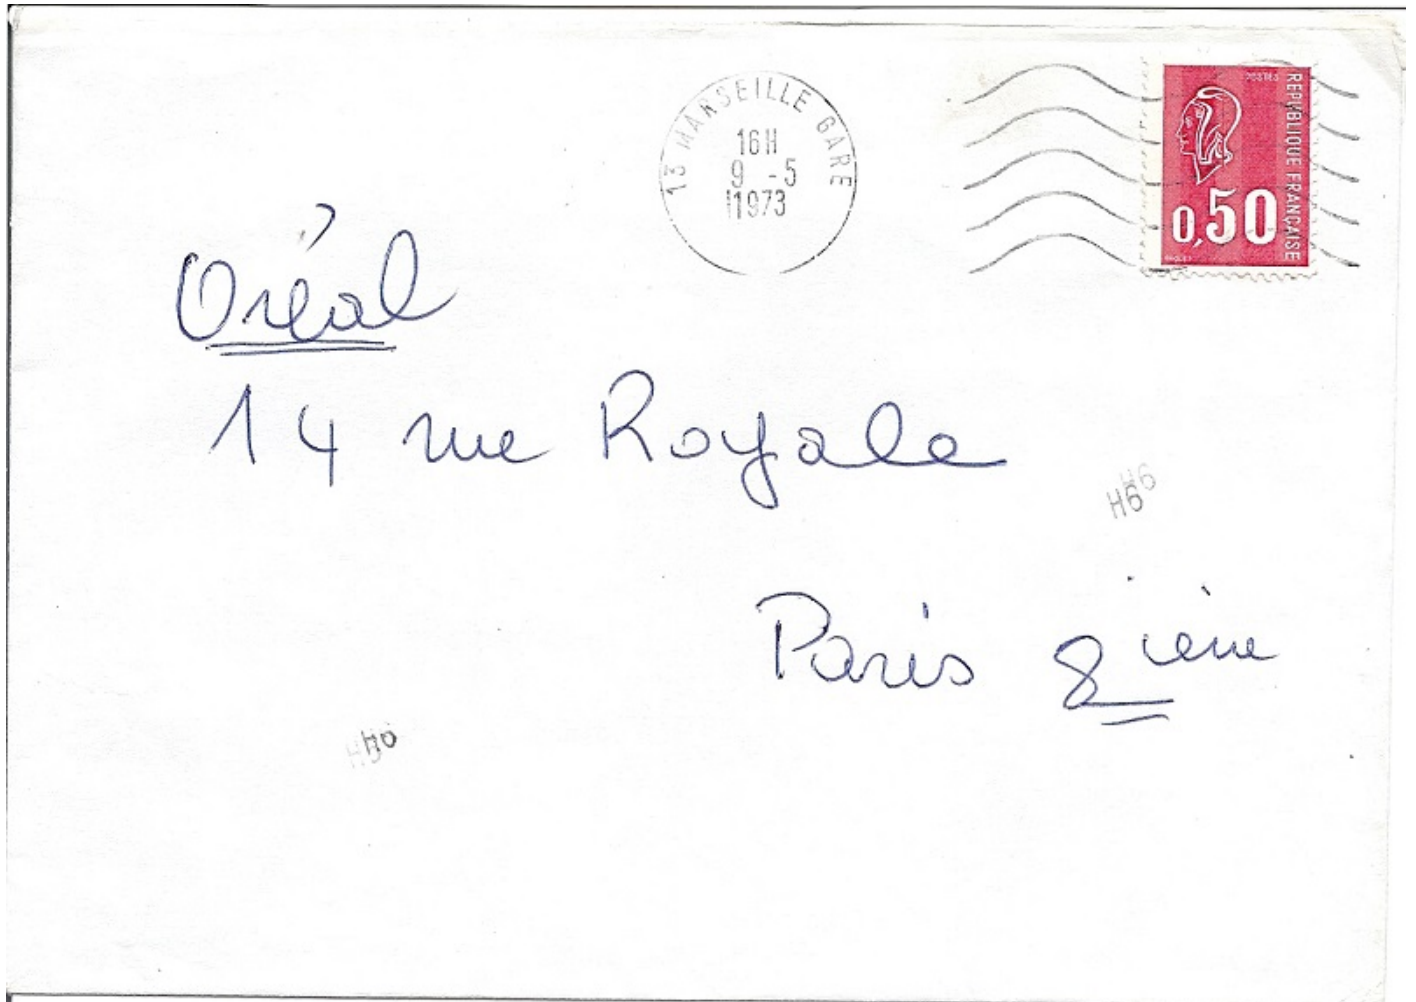 13 MARSEILLE GARE
16H
9 -5
1973
POSTES
REPUBLIQUE FRANÇAISE
0,50
Oréal
14 rue Royale
H6
H6
Paris 8ième